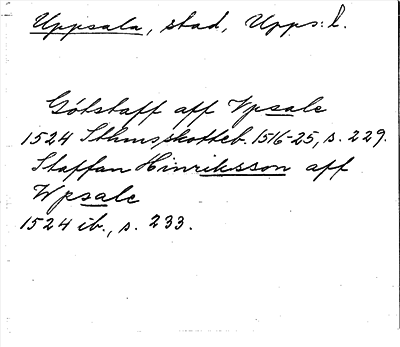 Uppsala, stad, Upps: l.
Götstaff aff Vpsale
1524 Sthmsskotteb. 1516-25, s. 229.
Staffan Hinriksson aff
Wpsale
1524 ib., s. 233.